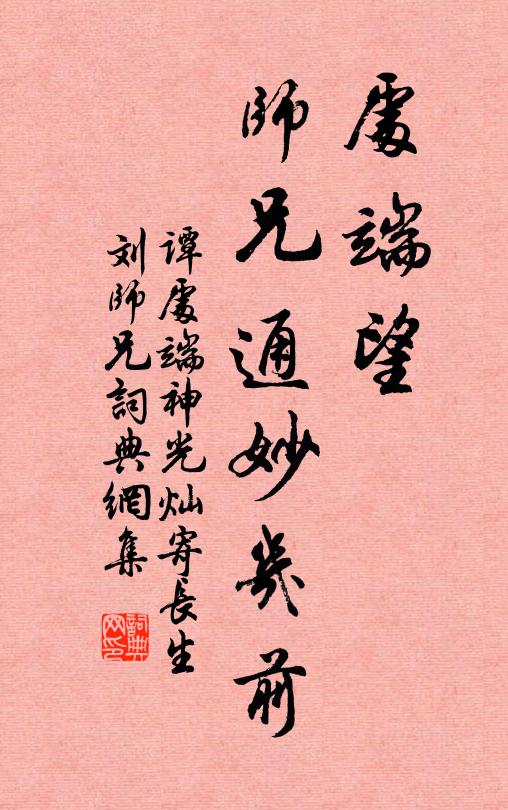 處端望
師兄通妙幾前
谭處端神光灿寄長生
刘師兄詞典網集
詞典网印